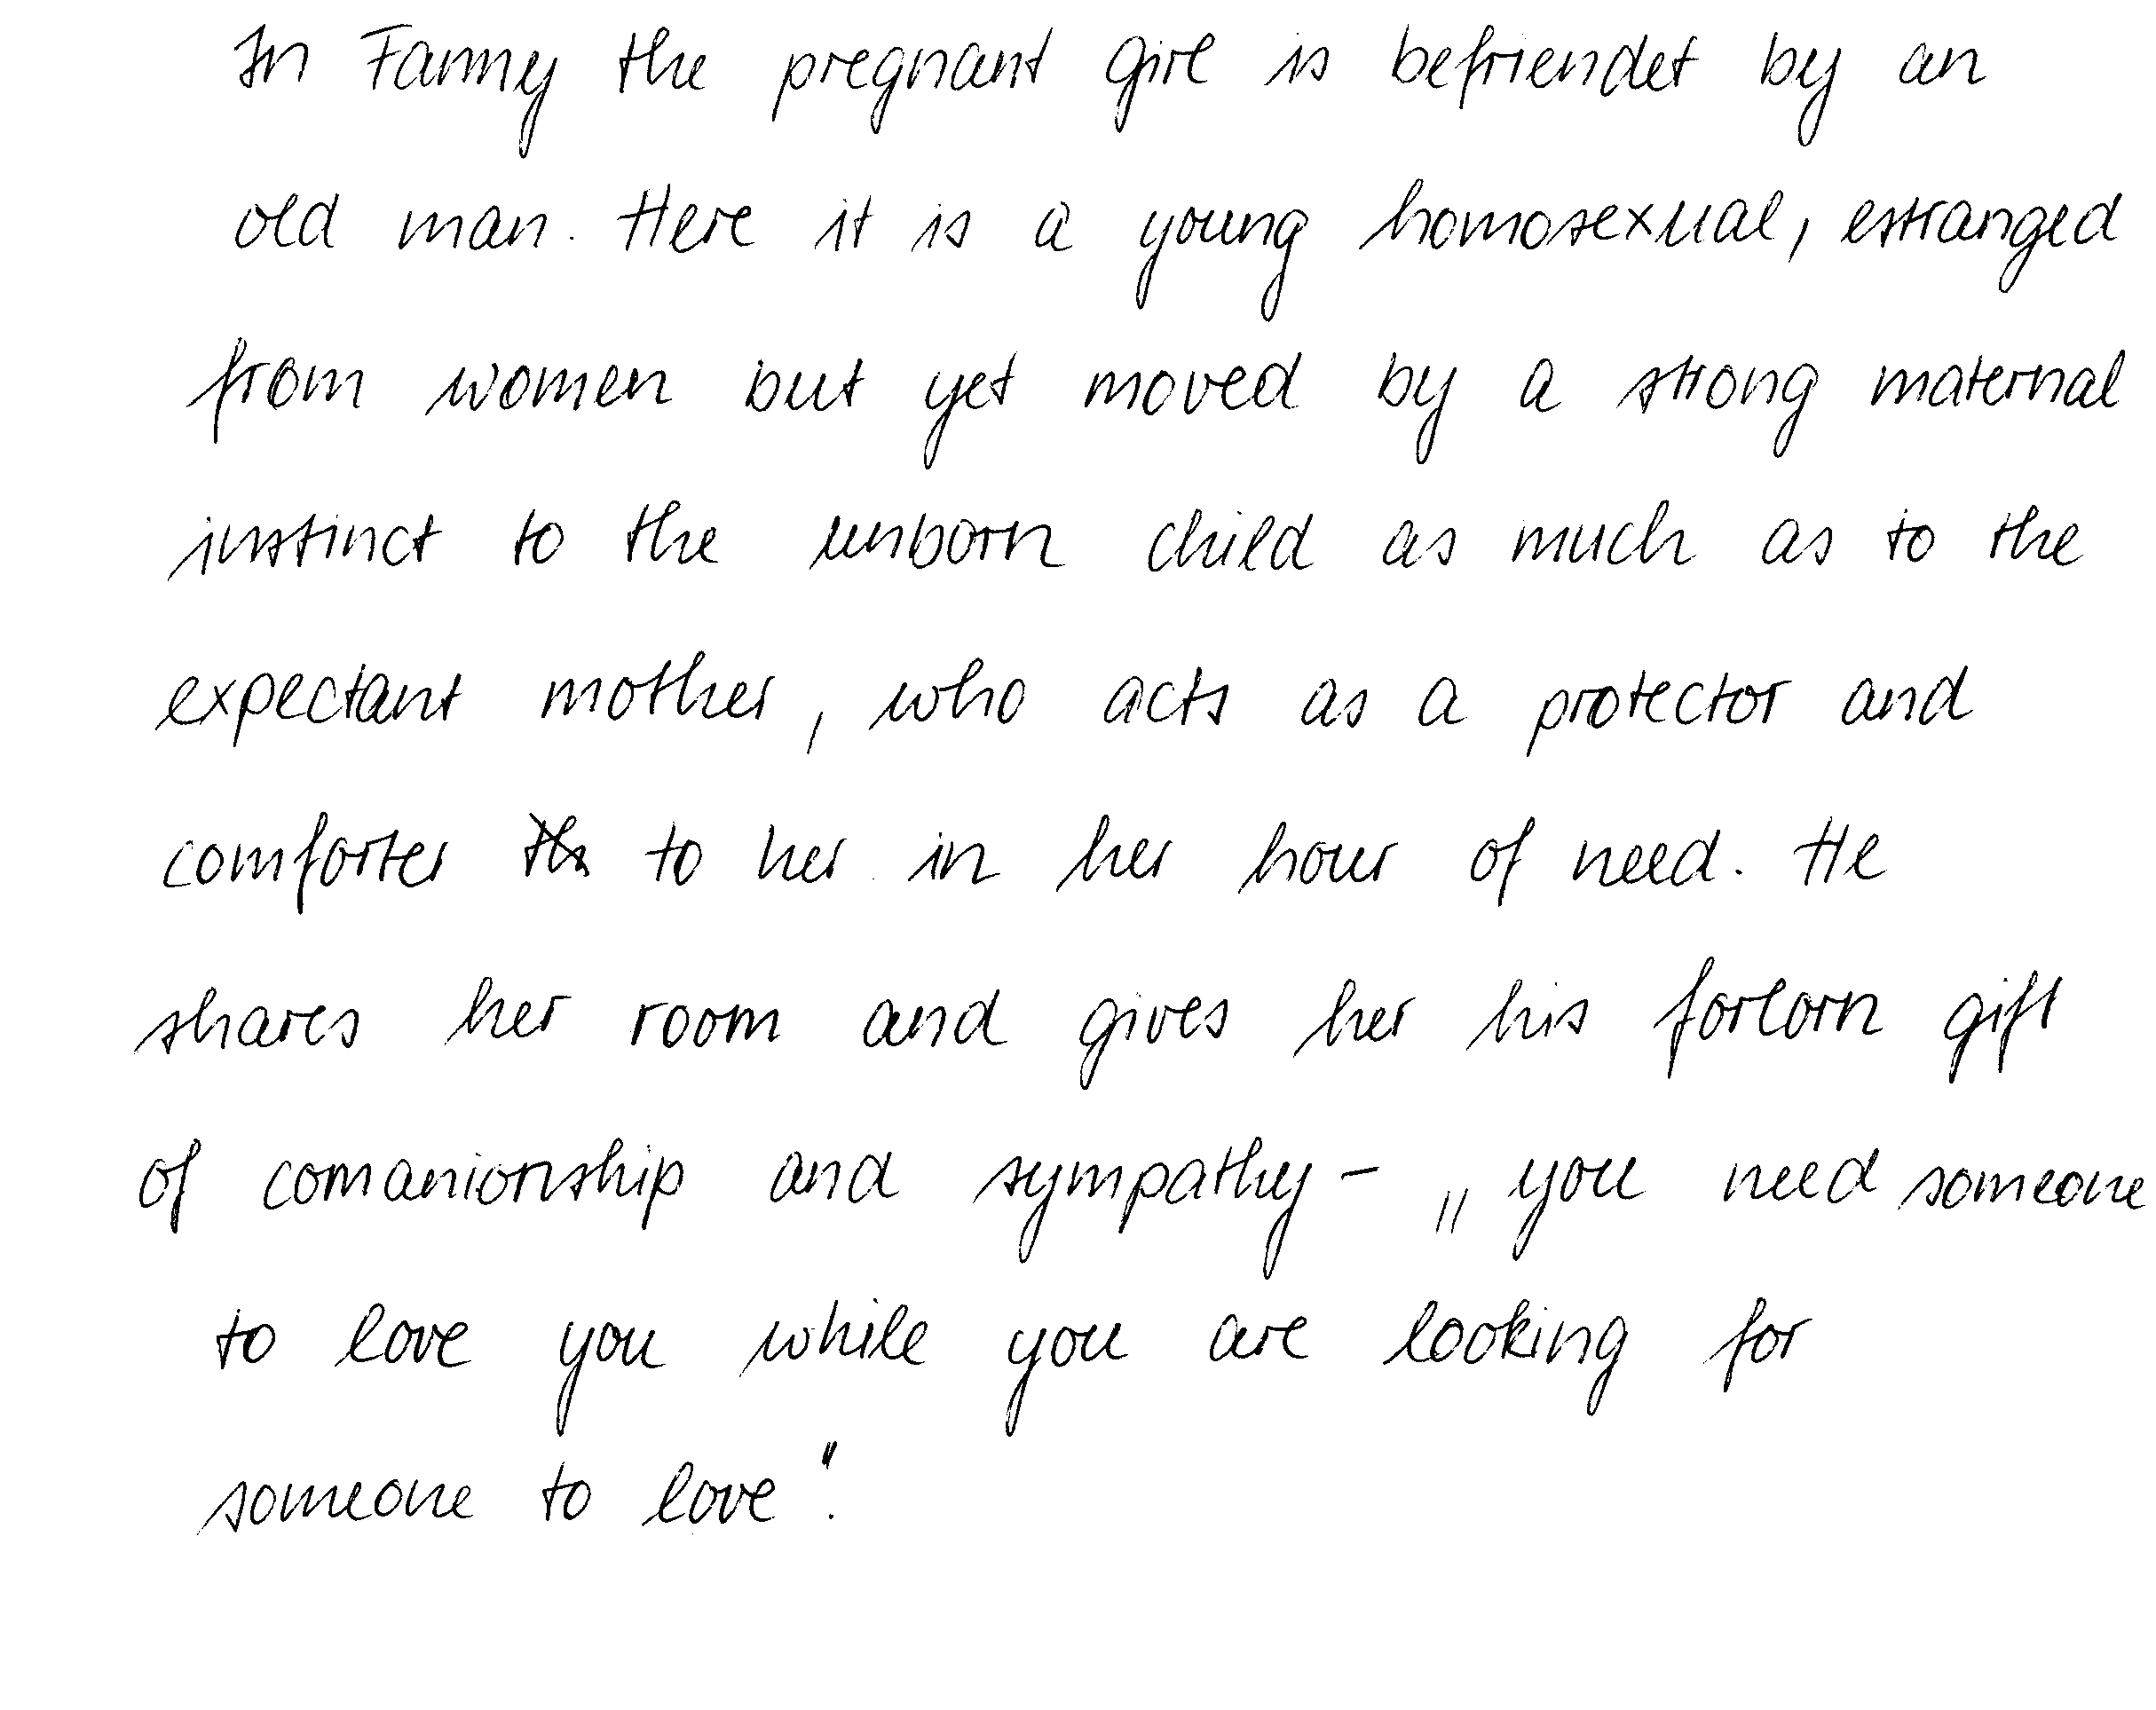 In Fanny the pregnant girl is befriendet by an
old man. Here it is a young homosexual, estranged
from women but yet moved by a strong maternal
instinct to the unborn child as much as to the
expectant mother, who acts as a protector and
comforter to her in her hour of need. He
shares her room and gives her his forlorn gift
of comanionship and sympathy - „you need someone
to love you while you are looking for
someone to love".